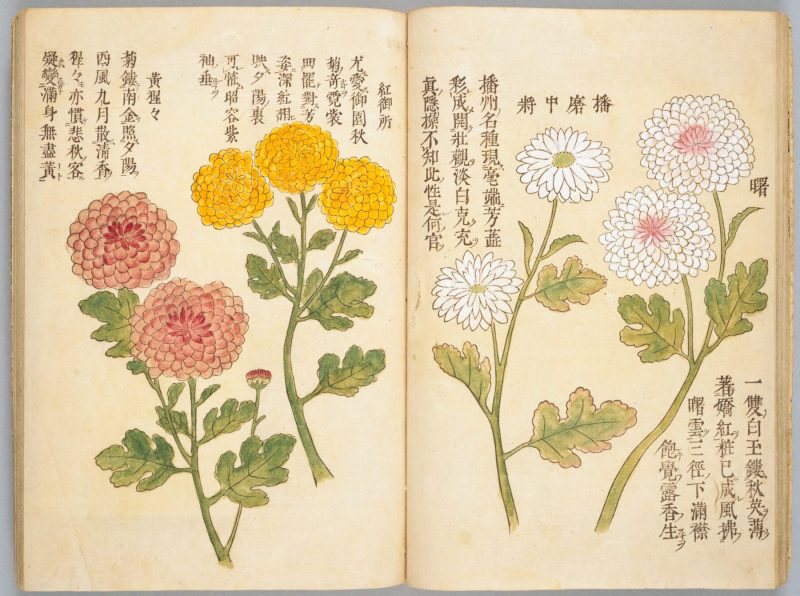 曙
一雙白玉鏤秋英薄
著嬌紅粧已成風拂
曙雲三徑下滿襟
飽覺露香生
播磨中将
播州名種現毫端芳蕋
彩成開壯觀淡白克充
真隠操不知此性是何官
紅御所
尤愛御園秋
菊奇霓裳
罷對芳
姿深紅相
映夕陽裏
可昭容紫
袖垂
黄猩々
菊鏤南金照夕陽
西風九月散清香
猩々亦慣悲秋客
疑變滿身無盡黄